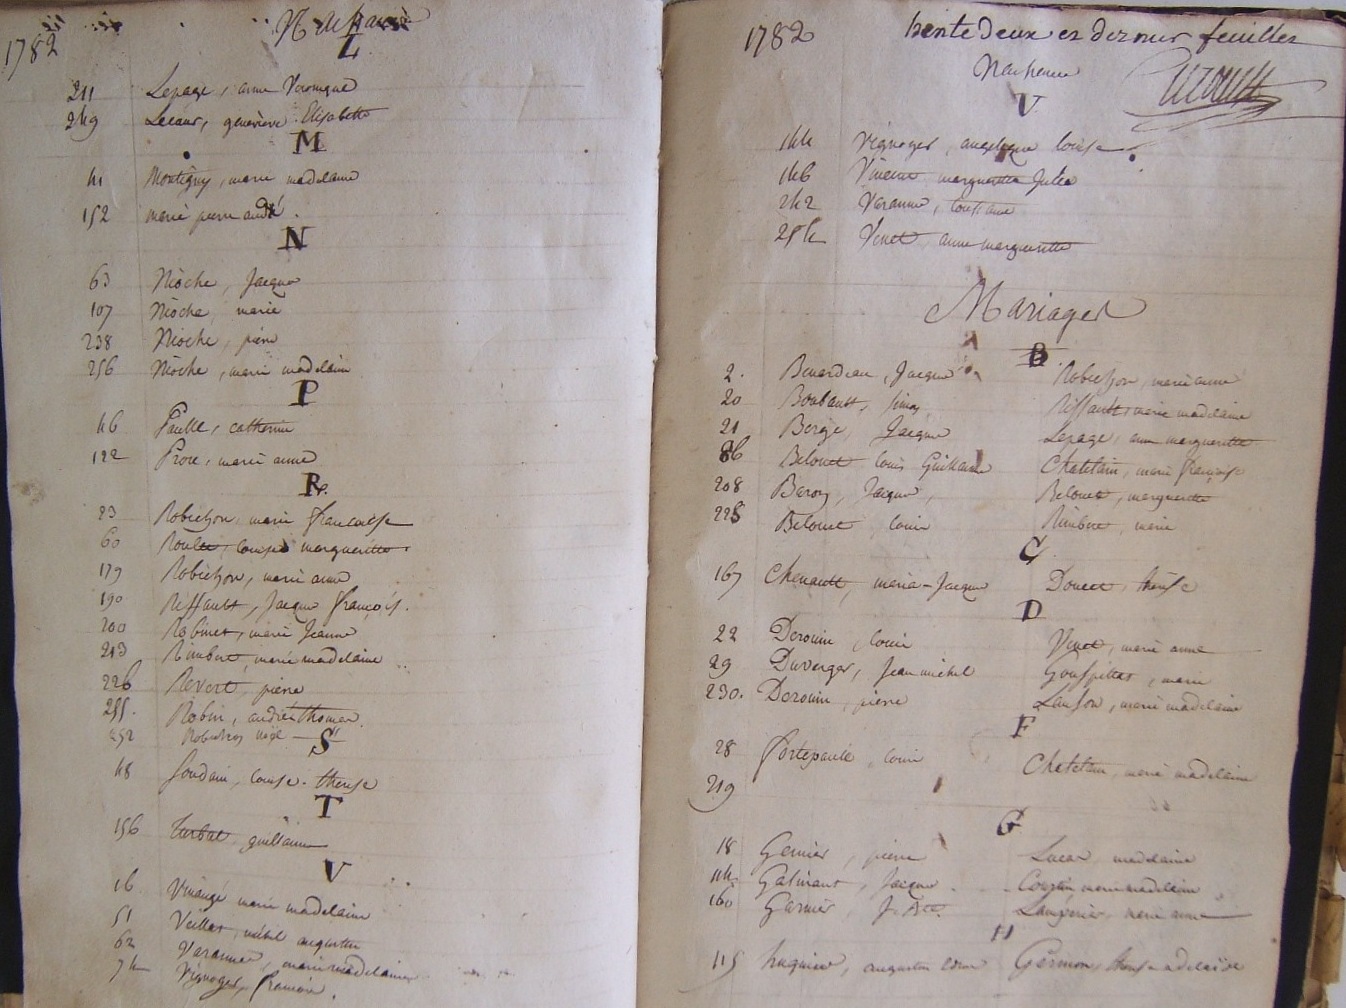 1782
L
211 Lepage, anne Veronique
249 Lecour, geneviève Elisabette
M
41 Montigny, marie madelaine
152 marie pierre andré
N
63 Nioche, Jacque
107 Nioche, marie
238 Nioche, pierre
256 Nioche, marie madelaine
P
46 catherine
122 marie anne
R
23 Robichon, marie francoise
60 Roulet, louise margueritte
179 Robichon, marie anne
190 Riffault, Jacque françois
200 Robinet, marie Jeanne
213 Rimbert, marie madelaine
226 Revert, pierre
255 Robin, andré thomas
252 Robichon
S
48 Soudain, louise therese
T
156 Turbat, guillaume
V
16 marie madelaine
51 augustin
62 Varanne, marie madelaine
74 Vignoger, francois
1782 trente deux et dernier feuillet
V
144 Vignoger, angelique louise
146 Vincent margueritte Julie
242 Varanne, toussaine
254 Venet anne margueritte
Mariages
B
2. Benardeau, Jacque Robichon, marie anne
20 Boubault, simon Riffault, marie madelaine
21 Berge, Jacque Lepage, anne margueritte
86 Belouet louis Guillaume Chatelain, marie françoise
208 Baron, Jacque, Belouet, margueritte
228 Belouet, louis Rimbert, marie
C
167 Chenault, marie-Jacque Doucet, therese
D
22 Derouin, louis Venet, marie anne
29 Duverger, Jean michel marie
230. Derouin, pierre Lanson, marie madelaine
F
28 Fortepaule, louis Chatelain, marie madelaine
219
G
18 Garnier, pierre Lucas, madelaine
114 Galinant, Jacque marie madelaine
160 Garnier, J. Bte. marie anne
H
115 huguier, augustin Germon, therese adelaïde